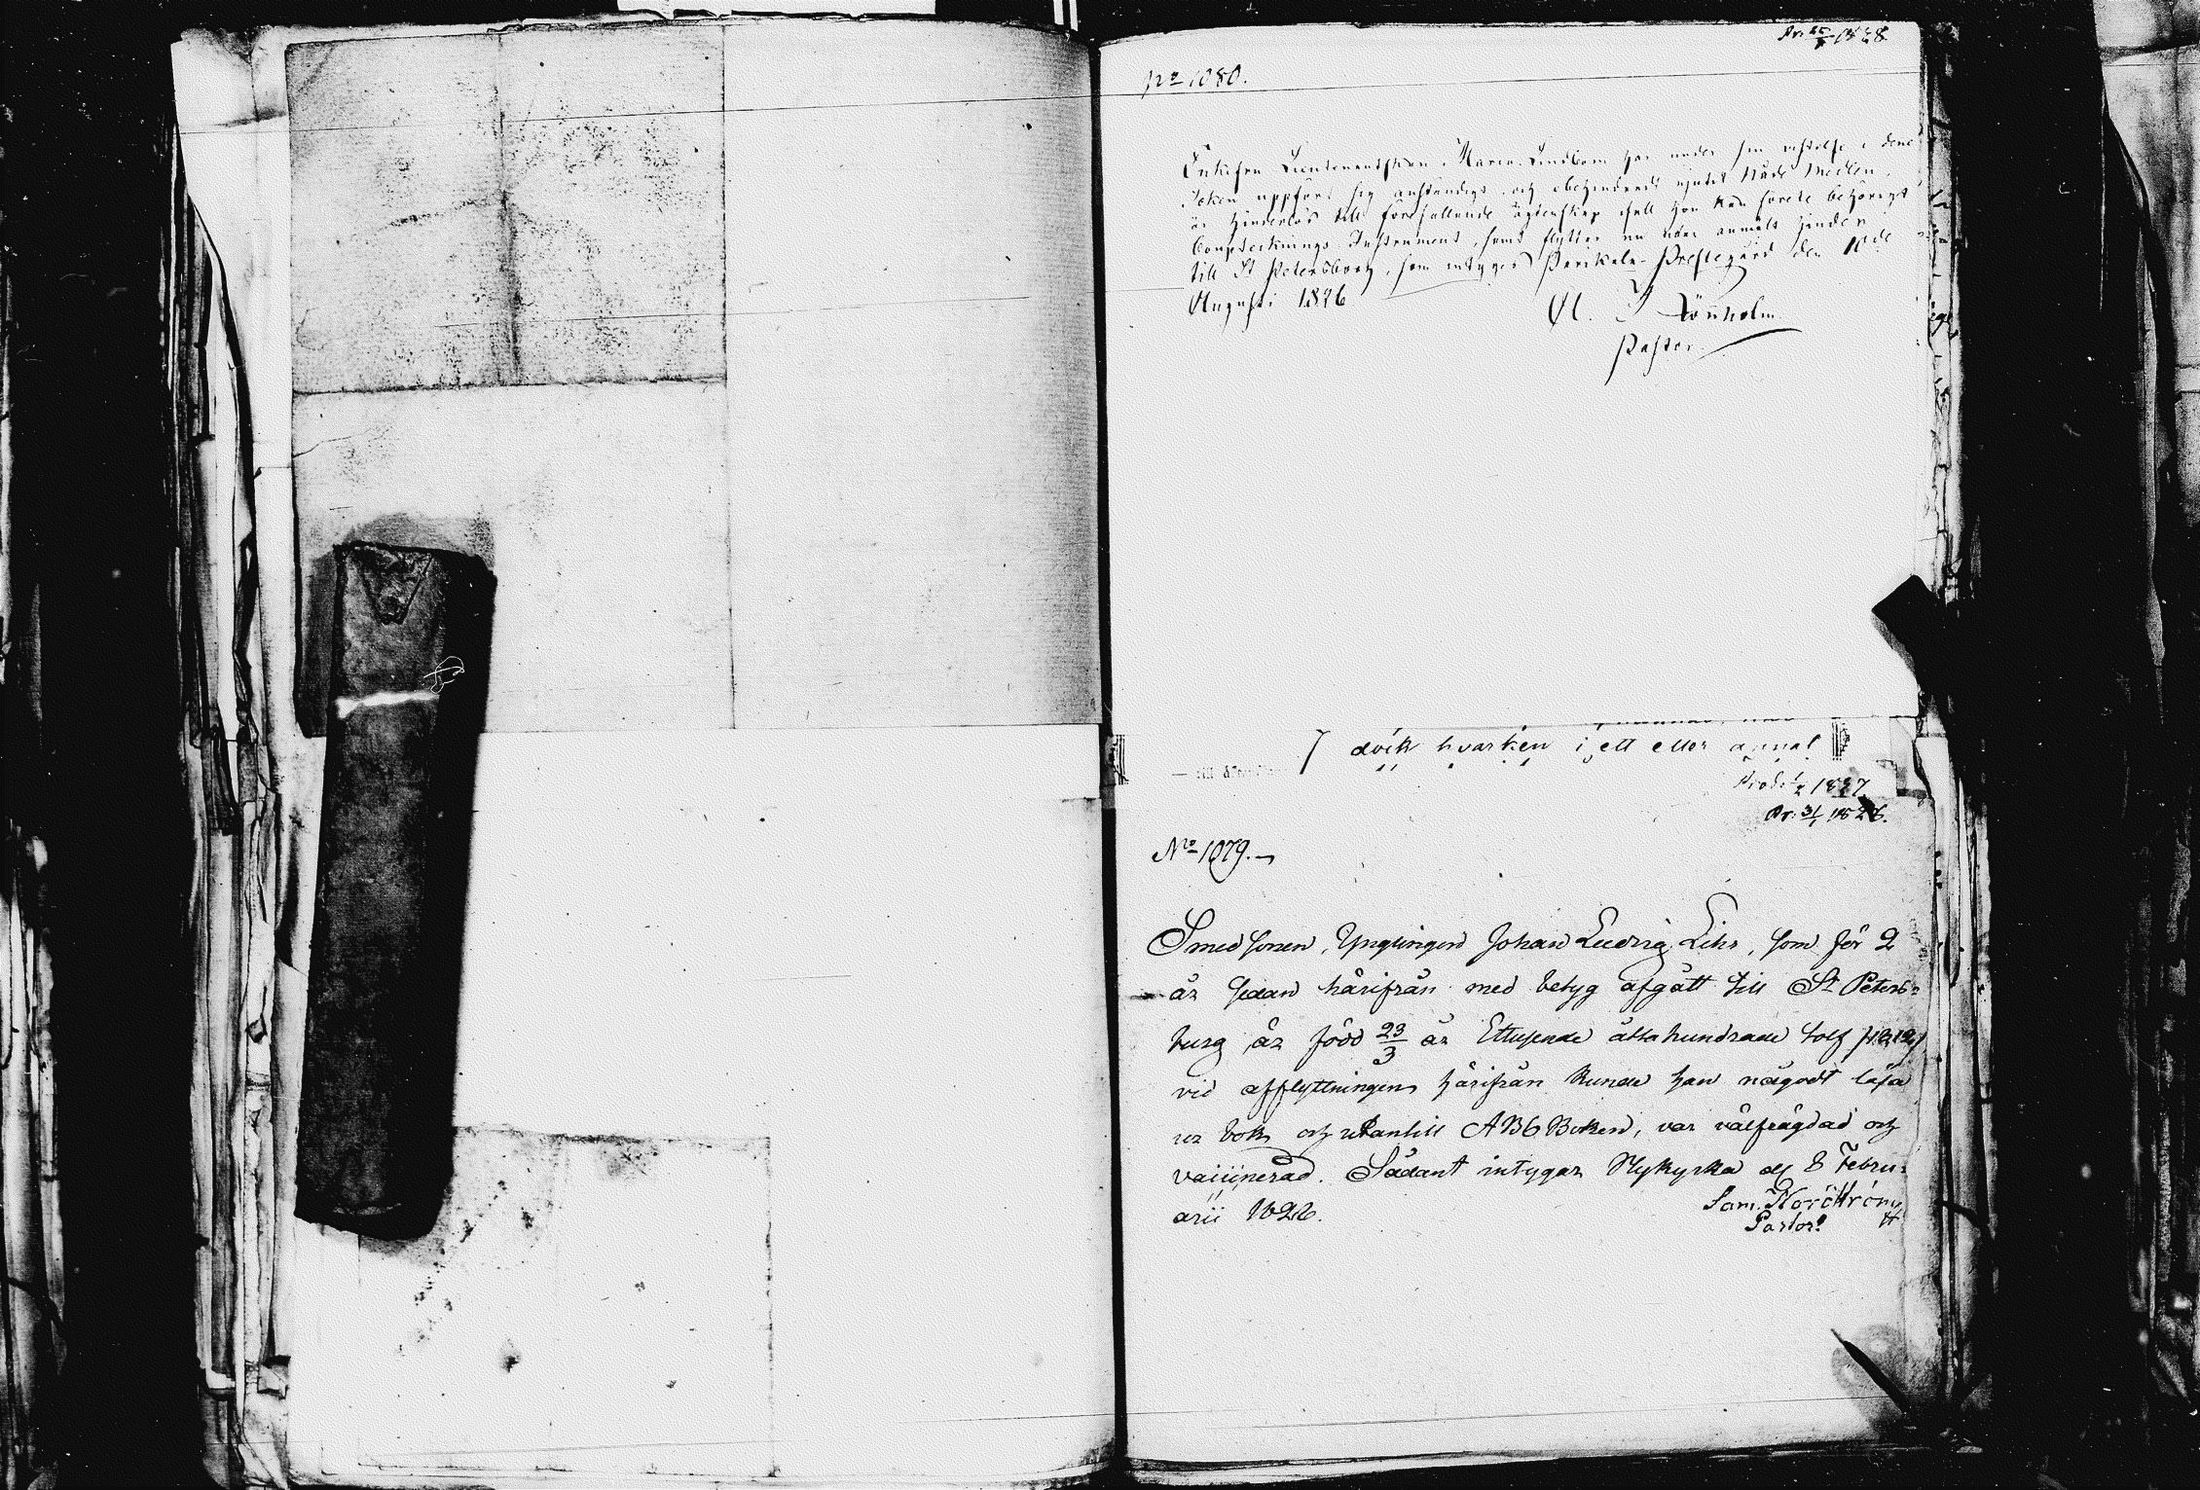 Ar. 25/8 1828
No 1080.
Enkefru Lieutenantskan Maria Lindbom har under sin vistelse i denna
Soken uppfört sig anständigt och obehindradt njutit Nåde Medlen,
är hinderlös till förefallande ägtenskap ifall hon kan förete behörigt
Bouptecknings Instrument, samt flyttar nu utan anmält hinder
till St Petersborg, som intygas Parikala Prestegård den 10de
Augusti 1826
Pastor
hvarken i ett eller annat
1827
Ar. 3/1 1826.
No 1079.
Smedsonen, Ynglingen Johan Ludvig Lihr, som för 2
år sedan härifrån med betyg afgått till St Peters-
burg är född 23/3 år Ettusende åttahundrade tolf /1812/
vid afflyttningen härifrån kunde han någodt läsa
ur bok och utantill ABC Boken, var välfrägdad och
vaccinerad. Sådant intygar Nykyrka d. 8 Febru-
arii 1826.
Sam. Nordström
Pastor.